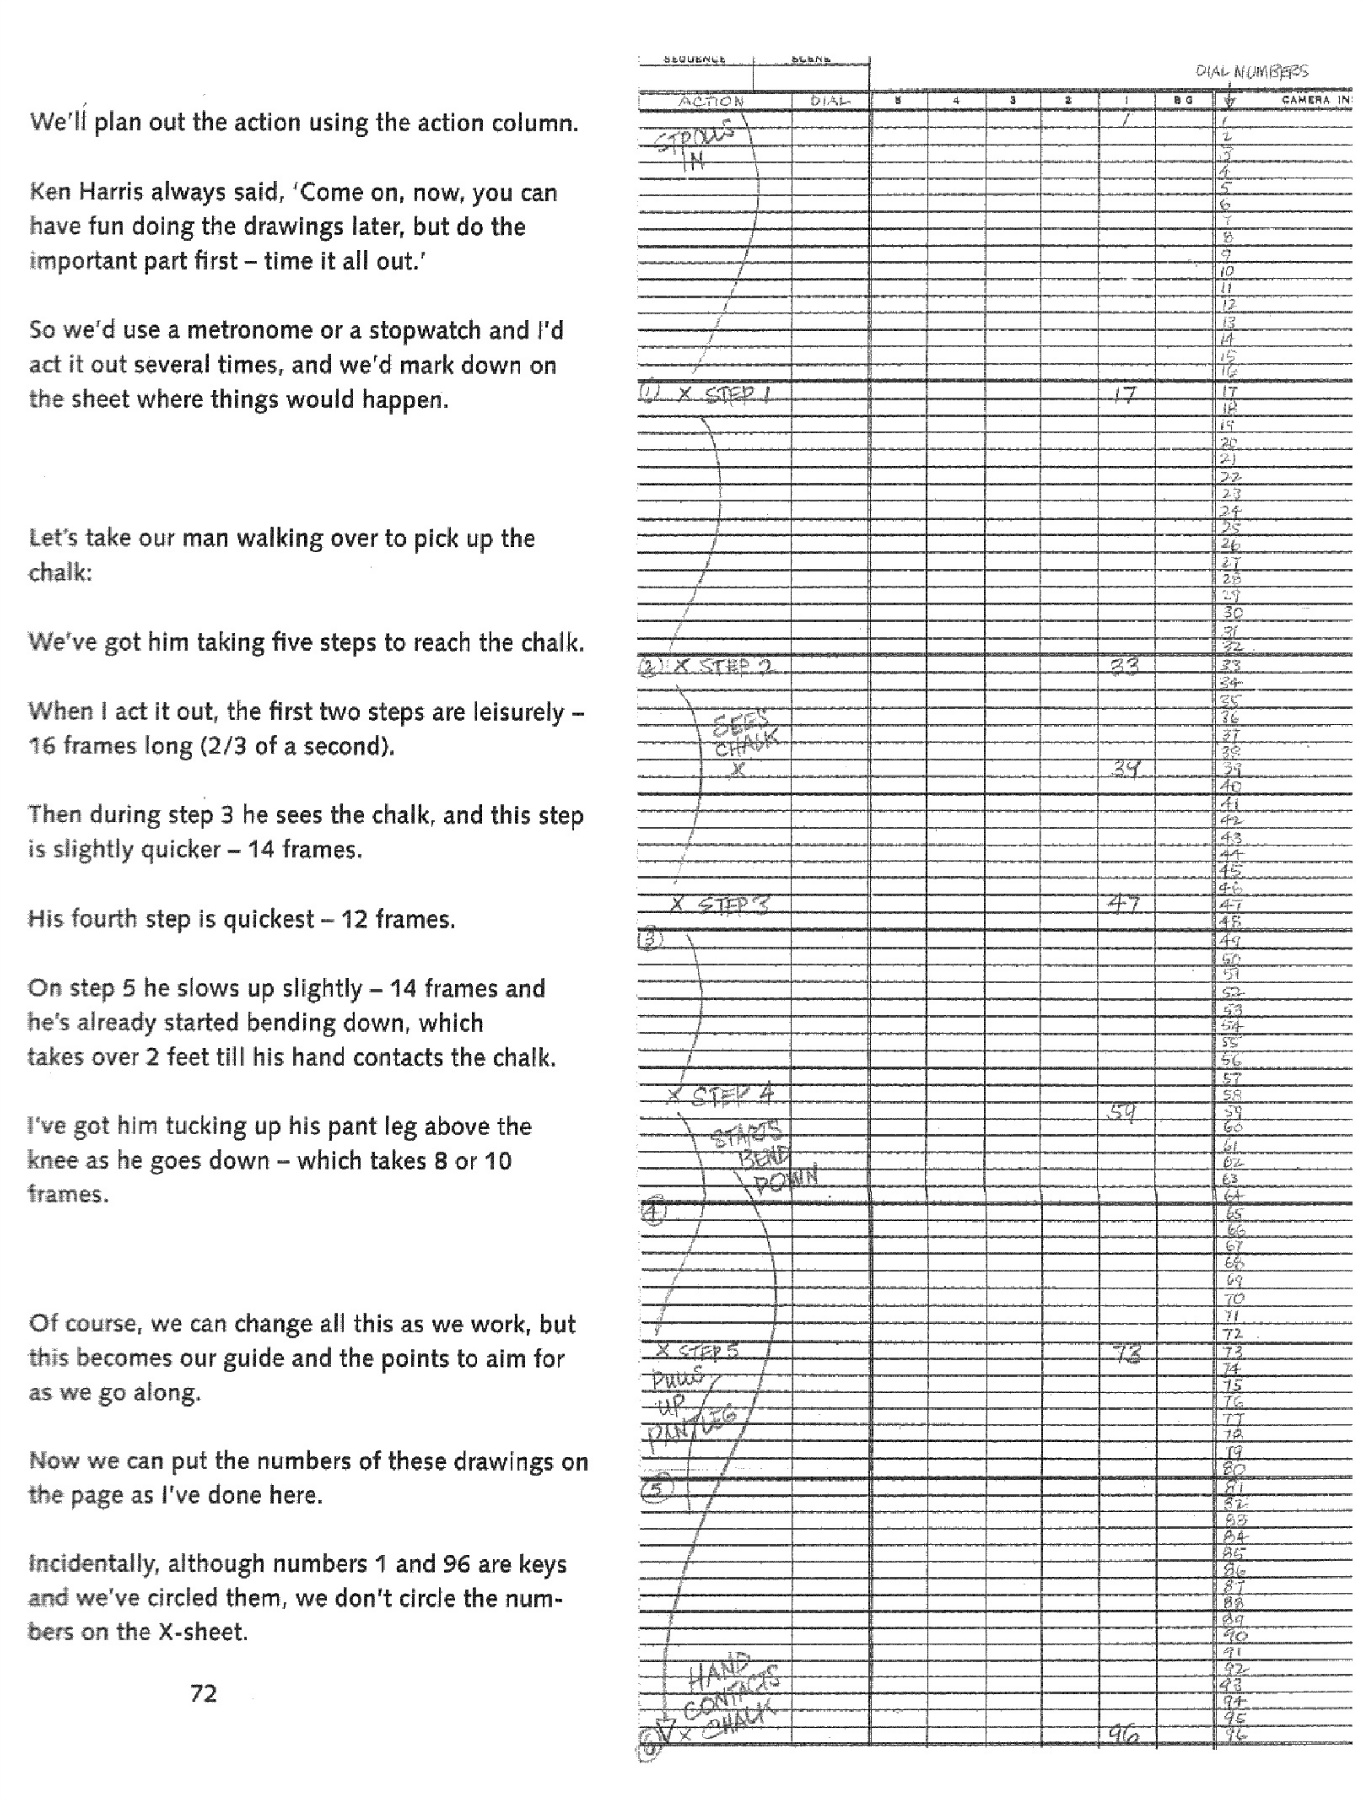 We'll plan out the action using the action column.
Ken Harris always said, 'Come on, now, you can
have fun doing the drawings later, but do the
important part first – time it all out.'
So we'd use a metronome or a stopwatch and I'd
act it out several times, and we'd mark down on
the sheet where things would happen.
Let's take our man walking over to pick up the
chalk:
We've got him taking five steps to reach the chalk.
When I act it out, the first two steps are leisurely –
16 frames long (2/3 of a second).
Then during step 3 he sees the chalk, and this step
is slightly quicker – 14 frames.
His fourth step is quickest – 12 frames.
On step 5 he slows up slightly – 14 frames and
he's already started bending down, which
takes over 2 feet till his hand contacts the chalk.
I've got him tucking up his pant leg above the
knee as he goes down – which takes 8 or 10
frames.
Of course, we can change all this as we work, but
this becomes our guide and the points to aim for
as we go along.
Now we can put the numbers of these drawings on
the page as I've done here.
Incidentally, although numbers 1 and 96 are keys
and we've circled them, we don't circle the num-
bers on the X-sheet.
72
SEQUENCE SCENE
DIAL NUMBERS
ACTION DIAL 5 4 3 2 1 BG CAMERA IN
1 1
STROLLS 2
IN 3
4
5
6
7
8
9
10
11
12
13
14
15
16
(1) X STEP 1 17 17
18
19
20
21
22
23
24
25
26
27
28
29
30
31
32
(2) X STEP 2 33 33
34
35
SEES 36
37
CHALK 38
X 39 39
40
41
42
43
44
45
46
X STEP 3 47 47
48
(3) 49
50
51
52
53
54
55
56
57
X STEP 4 58
59 59
60
STARTS 61
BEND 62
DOWN 63
64
(4) 65
66
67
68
69
70
71
72
X STEP 5 73 73
74
PULLS 75
UP 76
PANT LEG 77
78
79
80
(5) 81
82
83
84
85
86
87
88
89
90
91
HAND 92
93
CONTACTS 94
95
(6) X CHALK 96 96